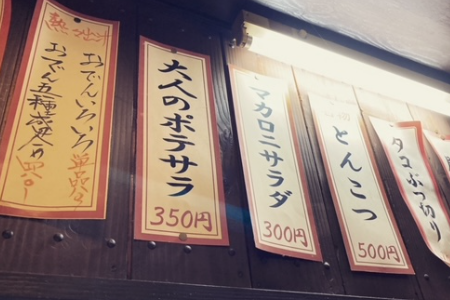 おでんいろいろ
おでん五種盛合め
大人のポテサラ
350円
マカロニサラダ
300円
とんこつ
500円
タコぶつ切り